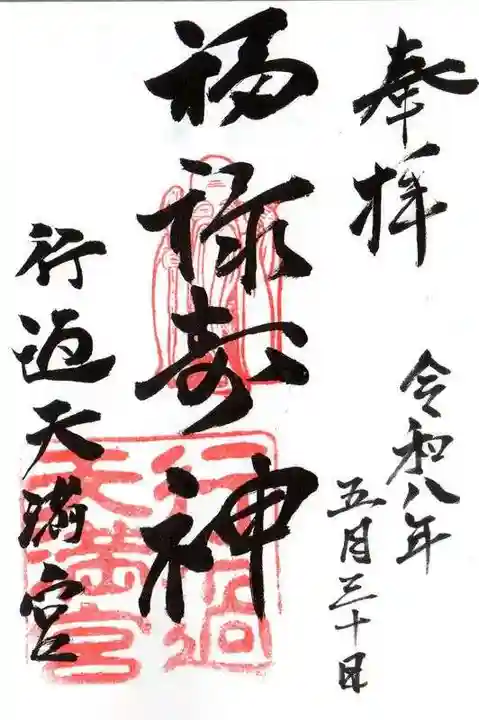 奉拝
令和八年
五月三十日
福禄寿神
行過天満宮
行過
天満宮